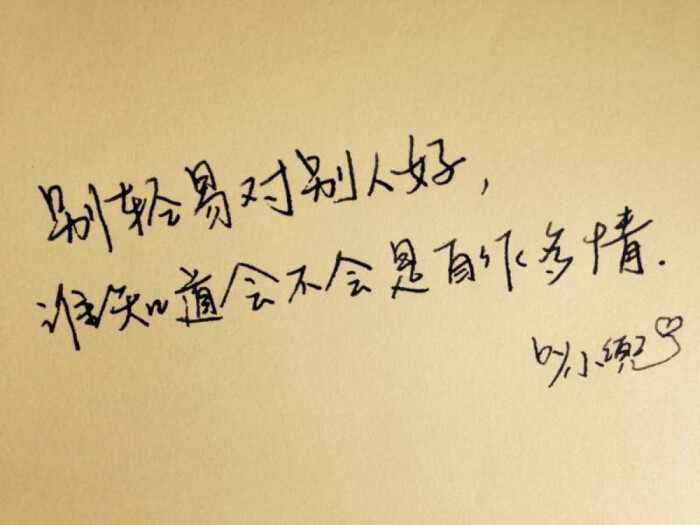 别轻易对别人好，
谁知道会不会是自作多情.
by小